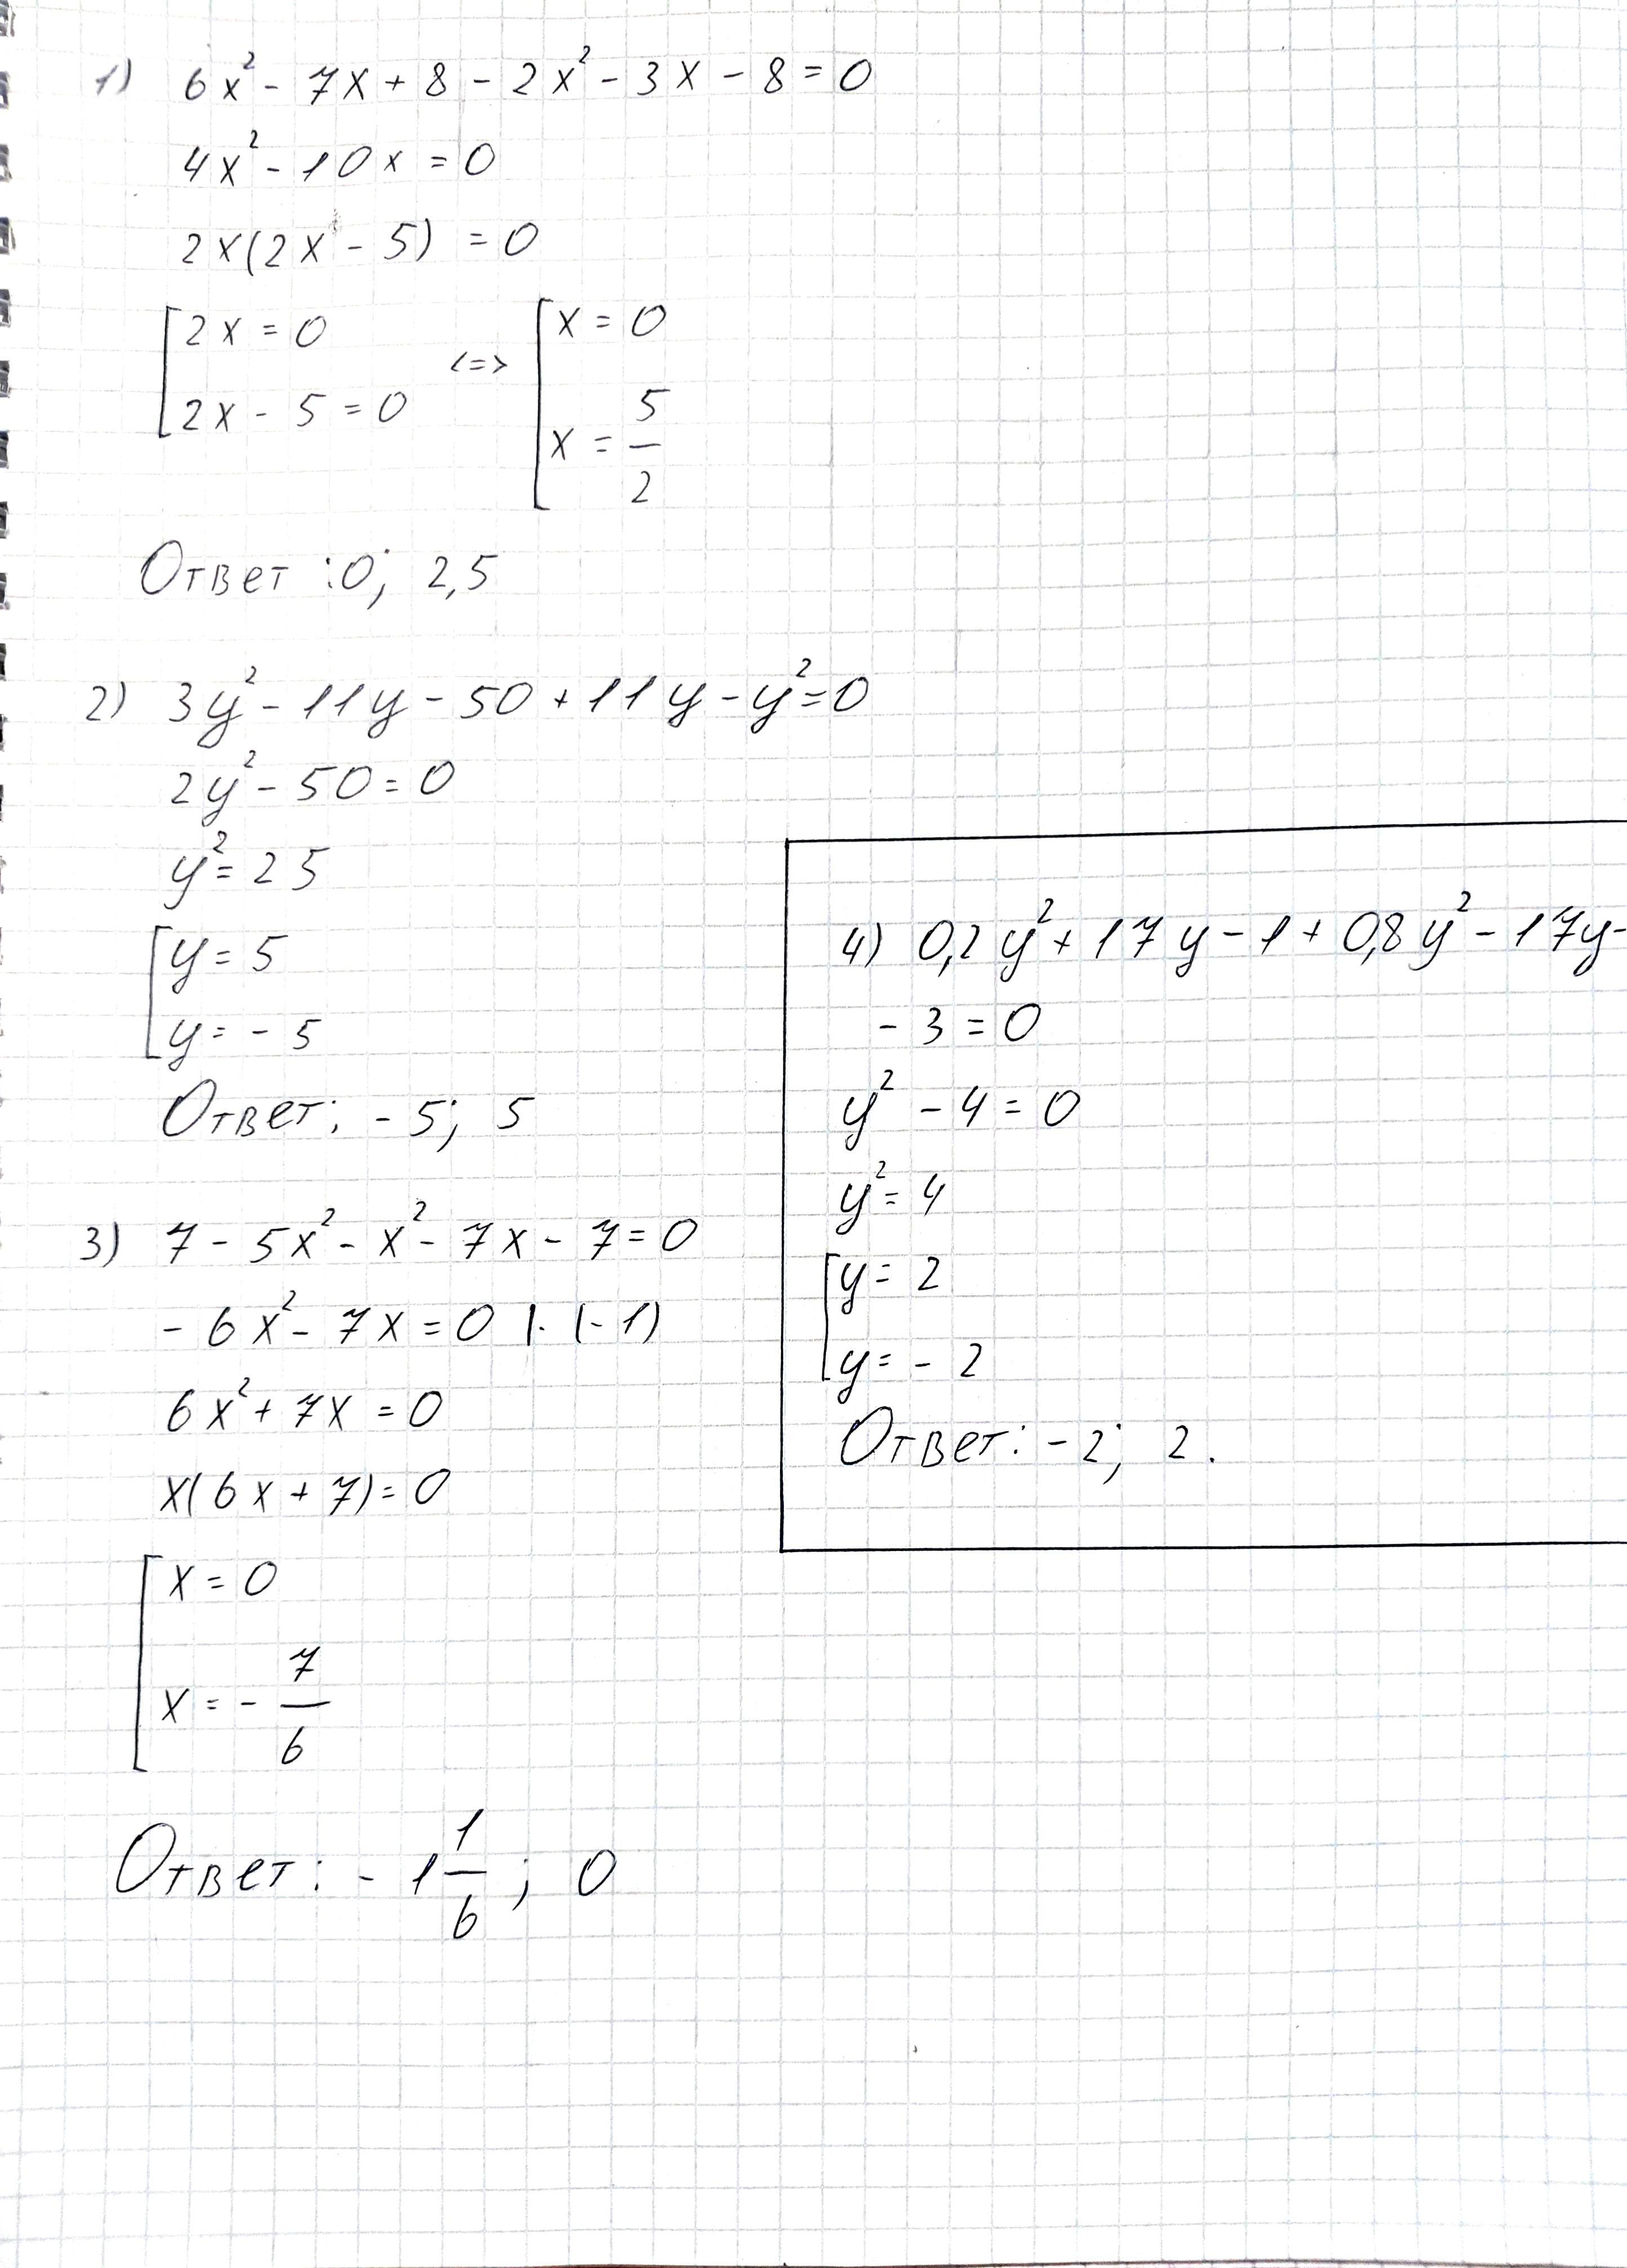 1) 6x² - 7x + 8 - 2x² - 3x - 8 = 0
4x² - 10x = 0
2x(2x - 5) = 0
[2x = 0 <=> [x = 0
2x - 5 = 0 x = 5/2
Ответ : 0; 2,5
2) 3y² - 11y - 50 + 11y - y² = 0
2y² - 50 = 0
y² = 25
[y = 5
y = - 5
Ответ: - 5; 5
3) 7 - 5x² - x² - 7x - 7 = 0
- 6x² - 7x = 0 | · (- 1)
6x² + 7x = 0
x(6x + 7) = 0
[x = 0
x = - 7/6
Ответ: - 1 1/6 ; 0
4) 0,2y² + 17y - 1 + 0,8y² - 17y -
- 3 = 0
y² - 4 = 0
y² = 4
[y = 2
y = - 2
Ответ: - 2; 2.